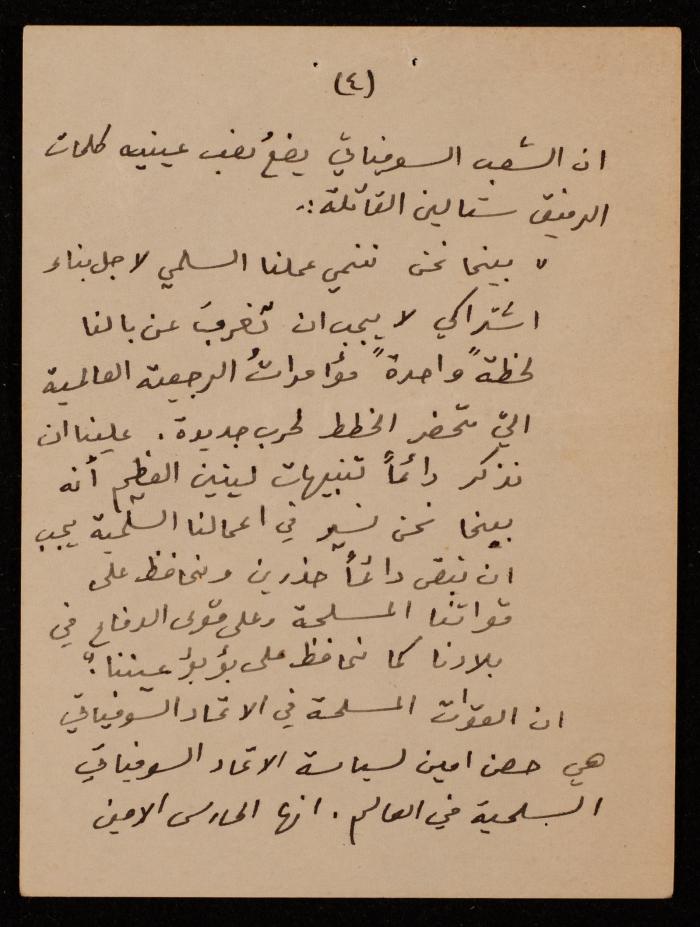 (٤)
ان الشعب السوفياتي يضعُ نصب عينيه كلمات
الرفيق ستالين القائلة :ـ
" بينما نحن ننمي عملنا السلمي لاجل بناء
اشتراكي لا يجب ان تغربَ عن بالنا
لحظةً واحدةً مؤامراتُ الرجعية العالمية
التي تحضر الخطط لحرب جديدة . علينا ان
نذكر دائماً تنبيهات لينين العظيم أنه
بينما نحن نسير في اعمالنا السلمية يجب
ان نبقى دائماً حذرين ونحافظ على
قواتنا المسلحة وعلى قوى الدفاع في
بلادنا كما نحافظ على بؤبؤ عيننا ."
ان القوات المسلحة في الاتحاد السوفياتي
هي حصن امين لسياسة الاتحاد السوفياتي
السلمية في العالم . انها الحارس الامين